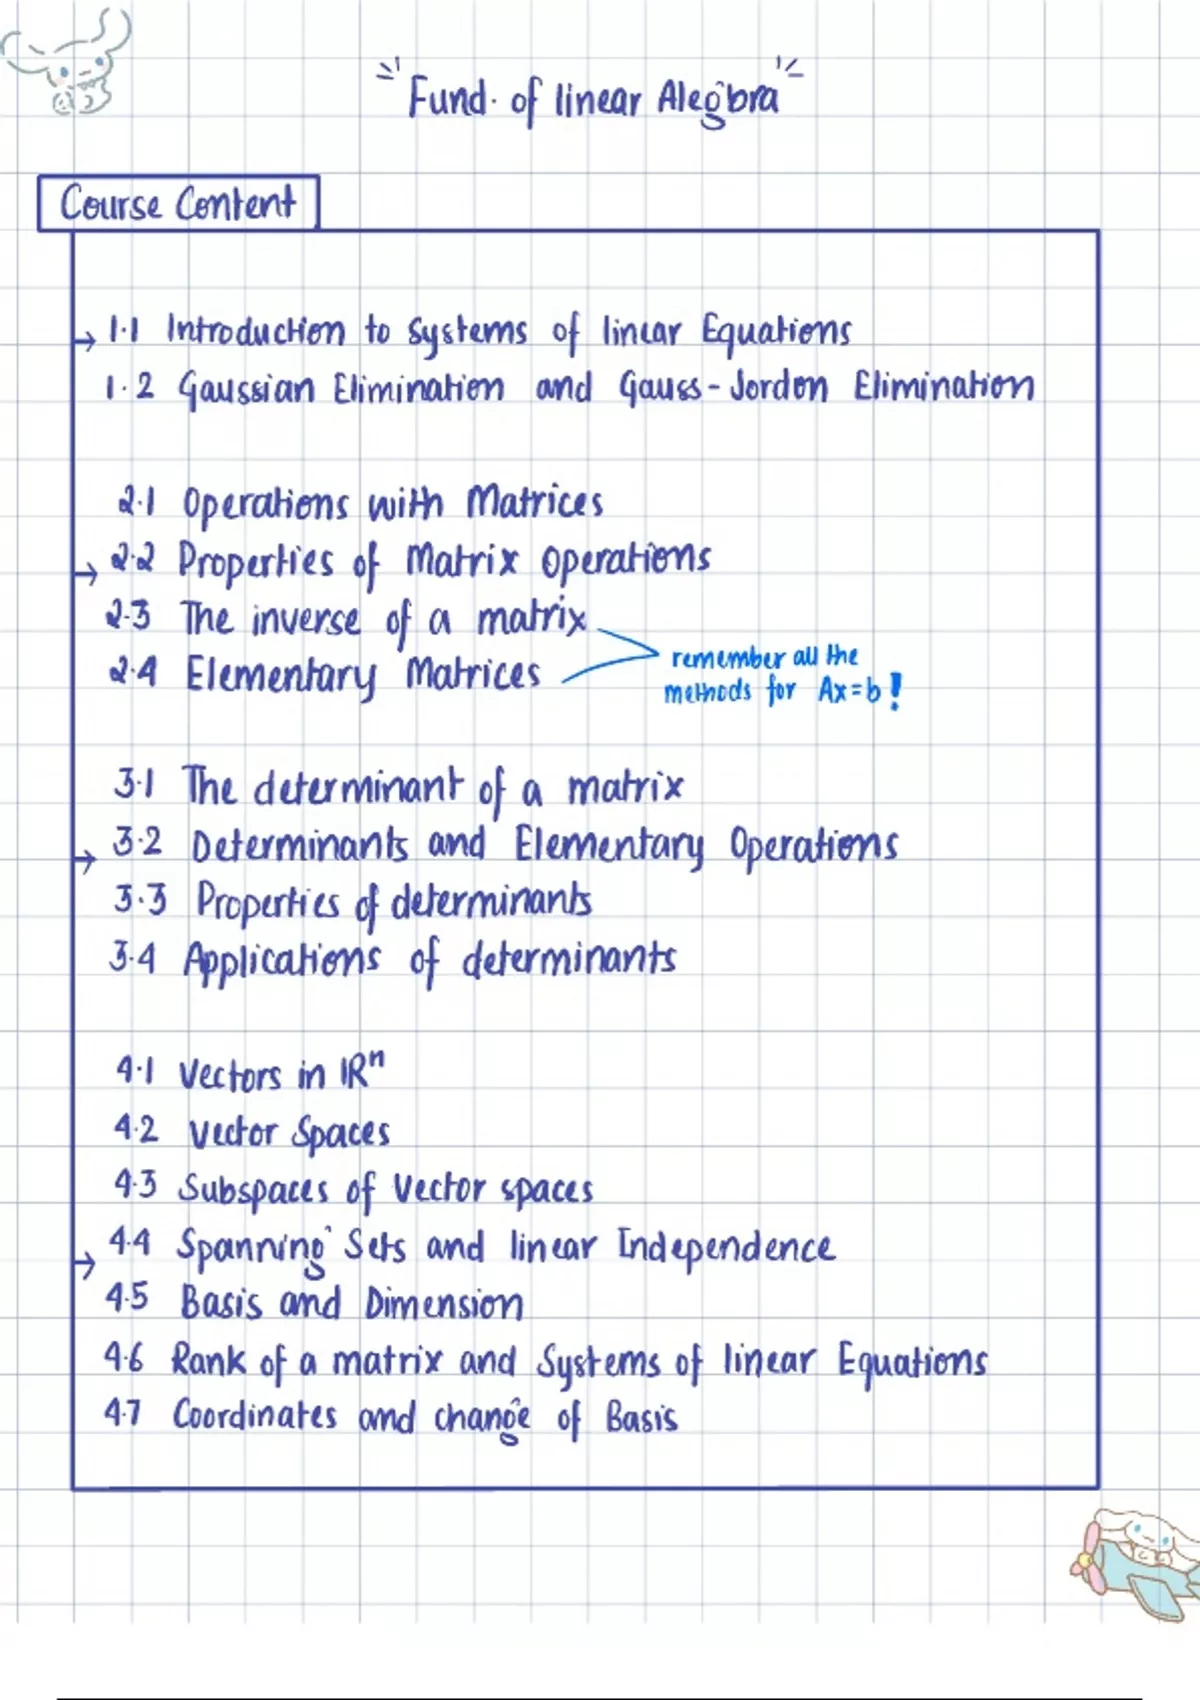 Fund. of linear Alegbra
Course Content
1.1 Introduction to Systems of linear Equations
1.2 Gaussian Elimination and Gauss-Jordon Elimination
2.1 Operations with Matrices
2.2 Properties of Matrix Operations
2.3 The inverse of a matrix
2.4 Elementary Matrices
remember all the
methods for Ax=b!
3.1 The determinant of a matrix
3.2 Determinants and Elementary Operations
3.3 Properties of determinants
3.4 Applications of determinants
4.1 Vectors in IRⁿ
4.2 Vector Spaces
4.3 Subspaces of Vector spaces
4.4 Spanning Sets and linear Independence
4.5 Basis and Dimension
4.6 Rank of a matrix and Systems of linear Equations
4.7 Coordinates and change of Basis